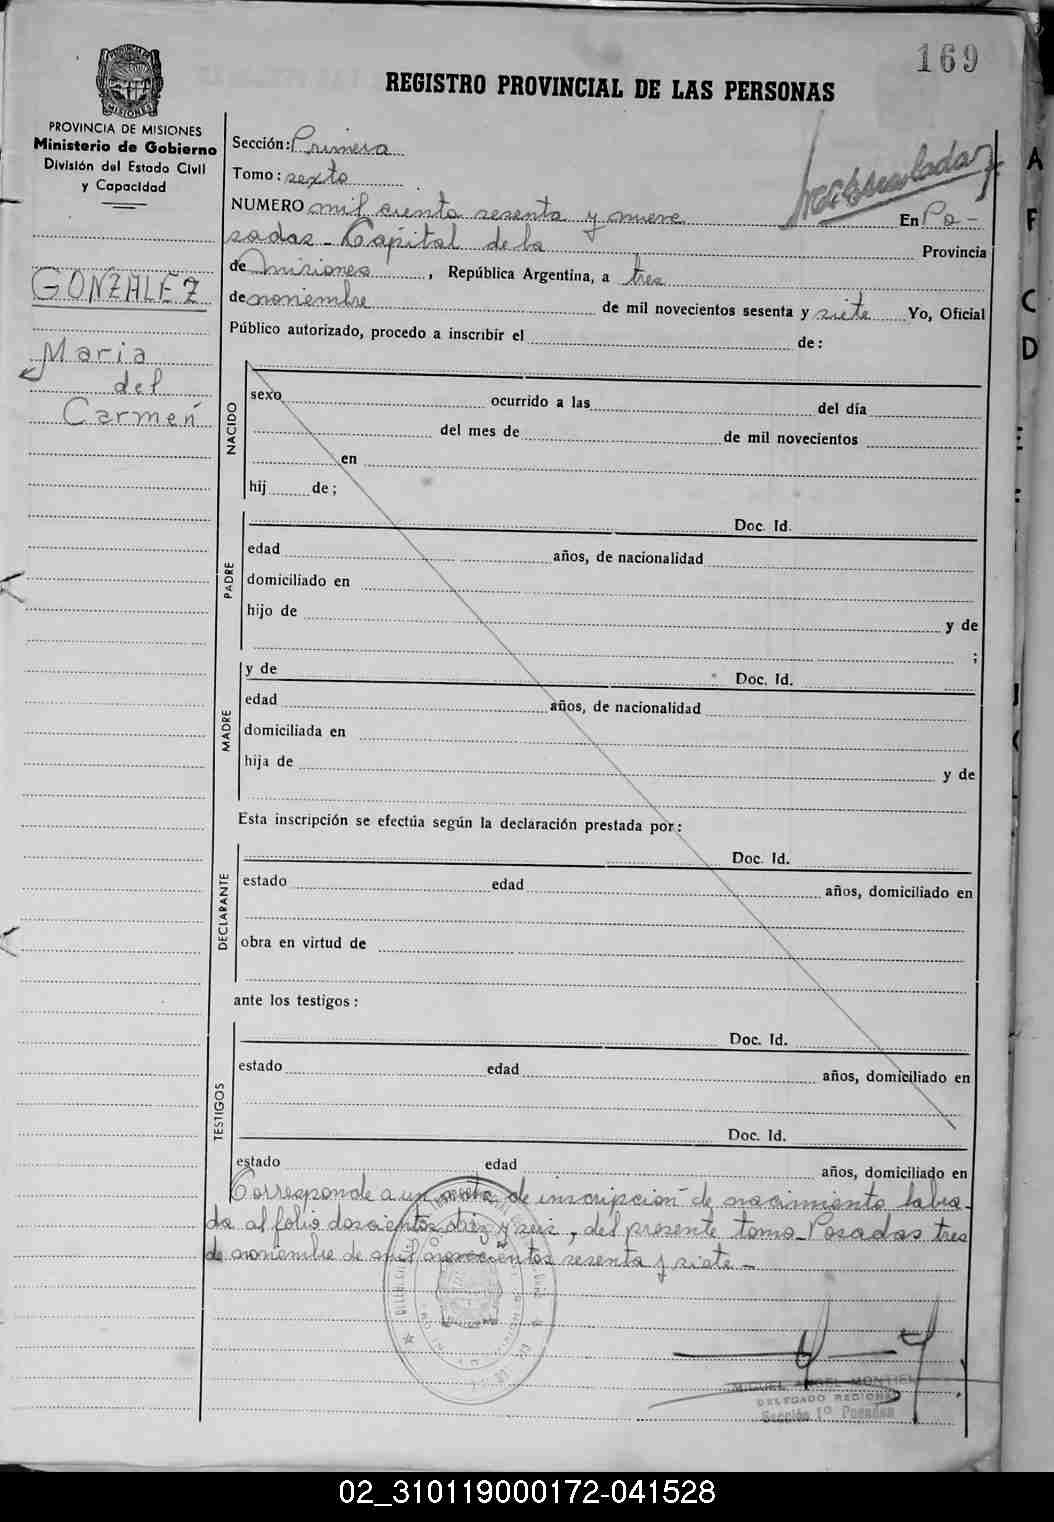 169
REGISTRO PROVINCIAL DE LAS PERSONAS
PROVINCIA DE MISIONES
Ministerio de Gobierno
División del Estado Civil
y Capacidad
GONZALEZ
Maria
del
Carmen
Sección: Primera
Tomo: sexto
NUMERO mil ciento sesenta y nueve En Po-
sadas - Capital de la Provincia
de Misiones, República Argentina, a tres
de noviembre de mil novecientos sesenta y siete Yo, Oficial
Público autorizado, procedo a inscribir el de:
NACIDO
sexo ocurrido a las del día
del mes de de mil novecientos
en
hij de;
PADRE
Doc. Id.
edad años, de nacionalidad
domiciliado en
hijo de y de
;
MADRE
y de Doc. Id.
edad años, de nacionalidad
domiciliada en
hija de y de
Esta inscripción se efectúa según la declaración prestada por:
DECLARANTE
Doc. Id.
estado edad años, domiciliado en
obra en virtud de
ante los testigos:
TESTIGOS
Doc. Id.
estado edad años, domiciliado en
Doc. Id.
estado edad años, domiciliado en
Corresponde a un acta de inscripción de nacimiento labra-
da al folio doscientos diez y seis, del presente tomo - Posadas tres
de noviembre de mil novecientos sesenta y siete -
MIGUEL ANGEL MONTIEL
DELEGADO REGIONAL
Sección 1º Posadas
A
F
C
D
02_310119000172-041528